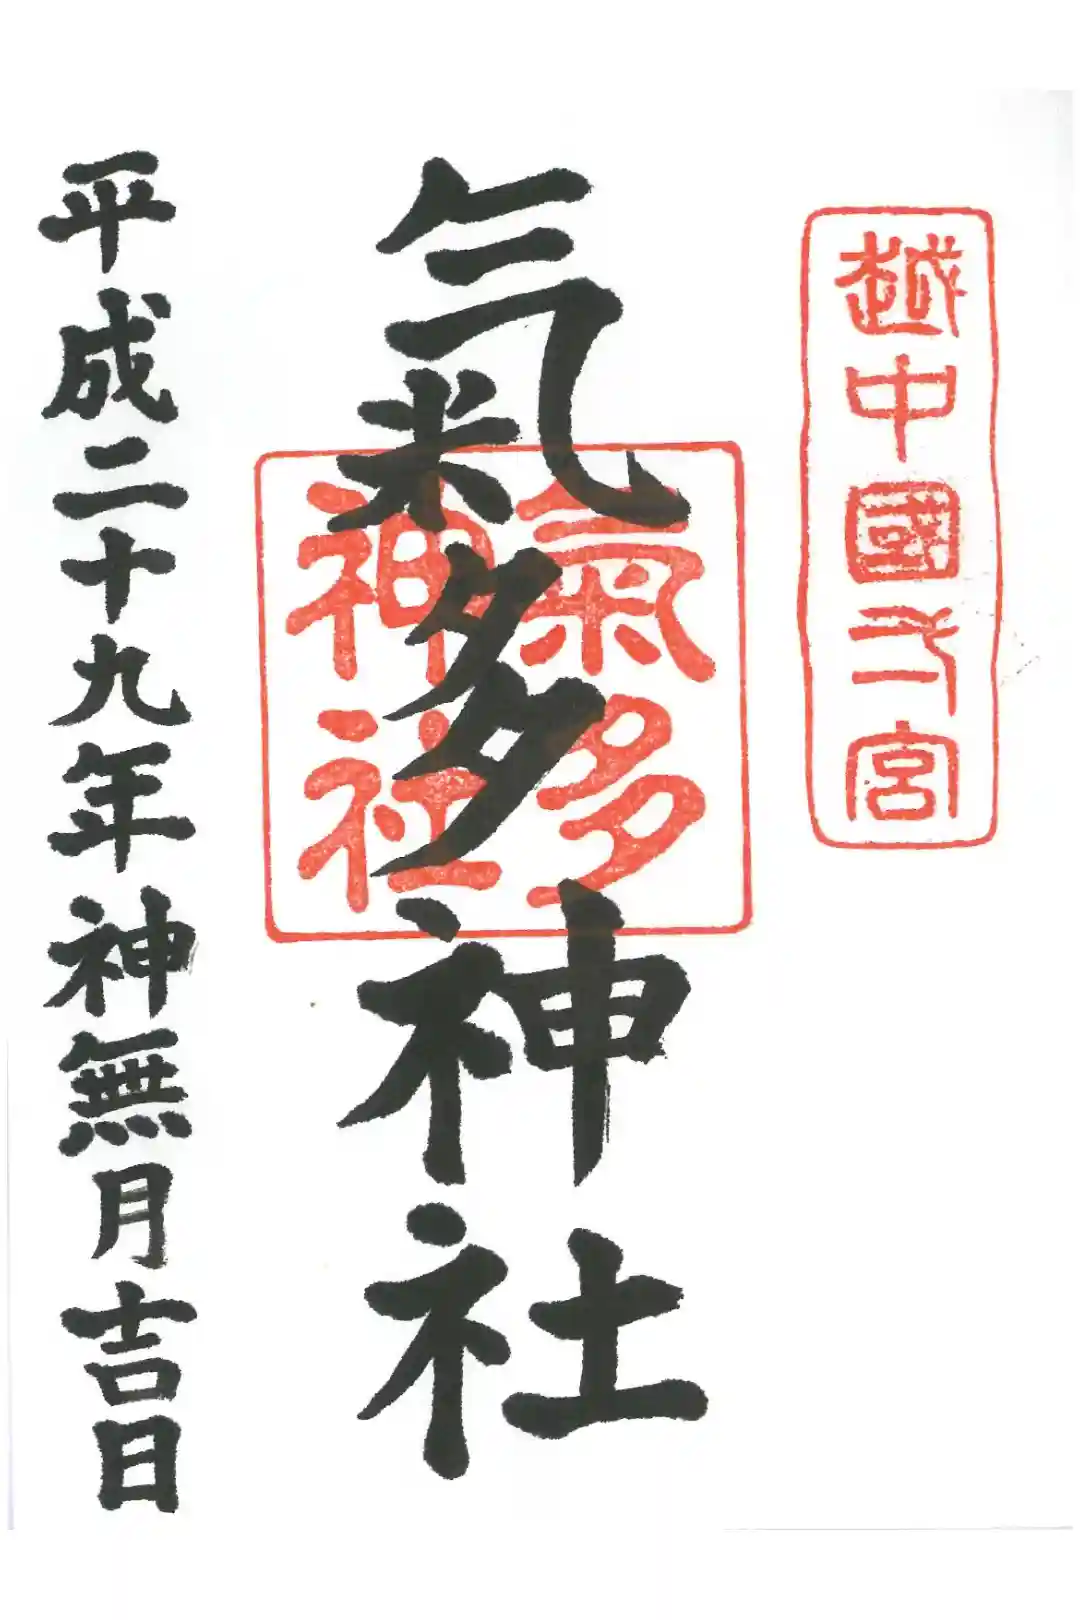 越中國一宮
氣多神社
氣多
神社
平成二十九年神無月吉日